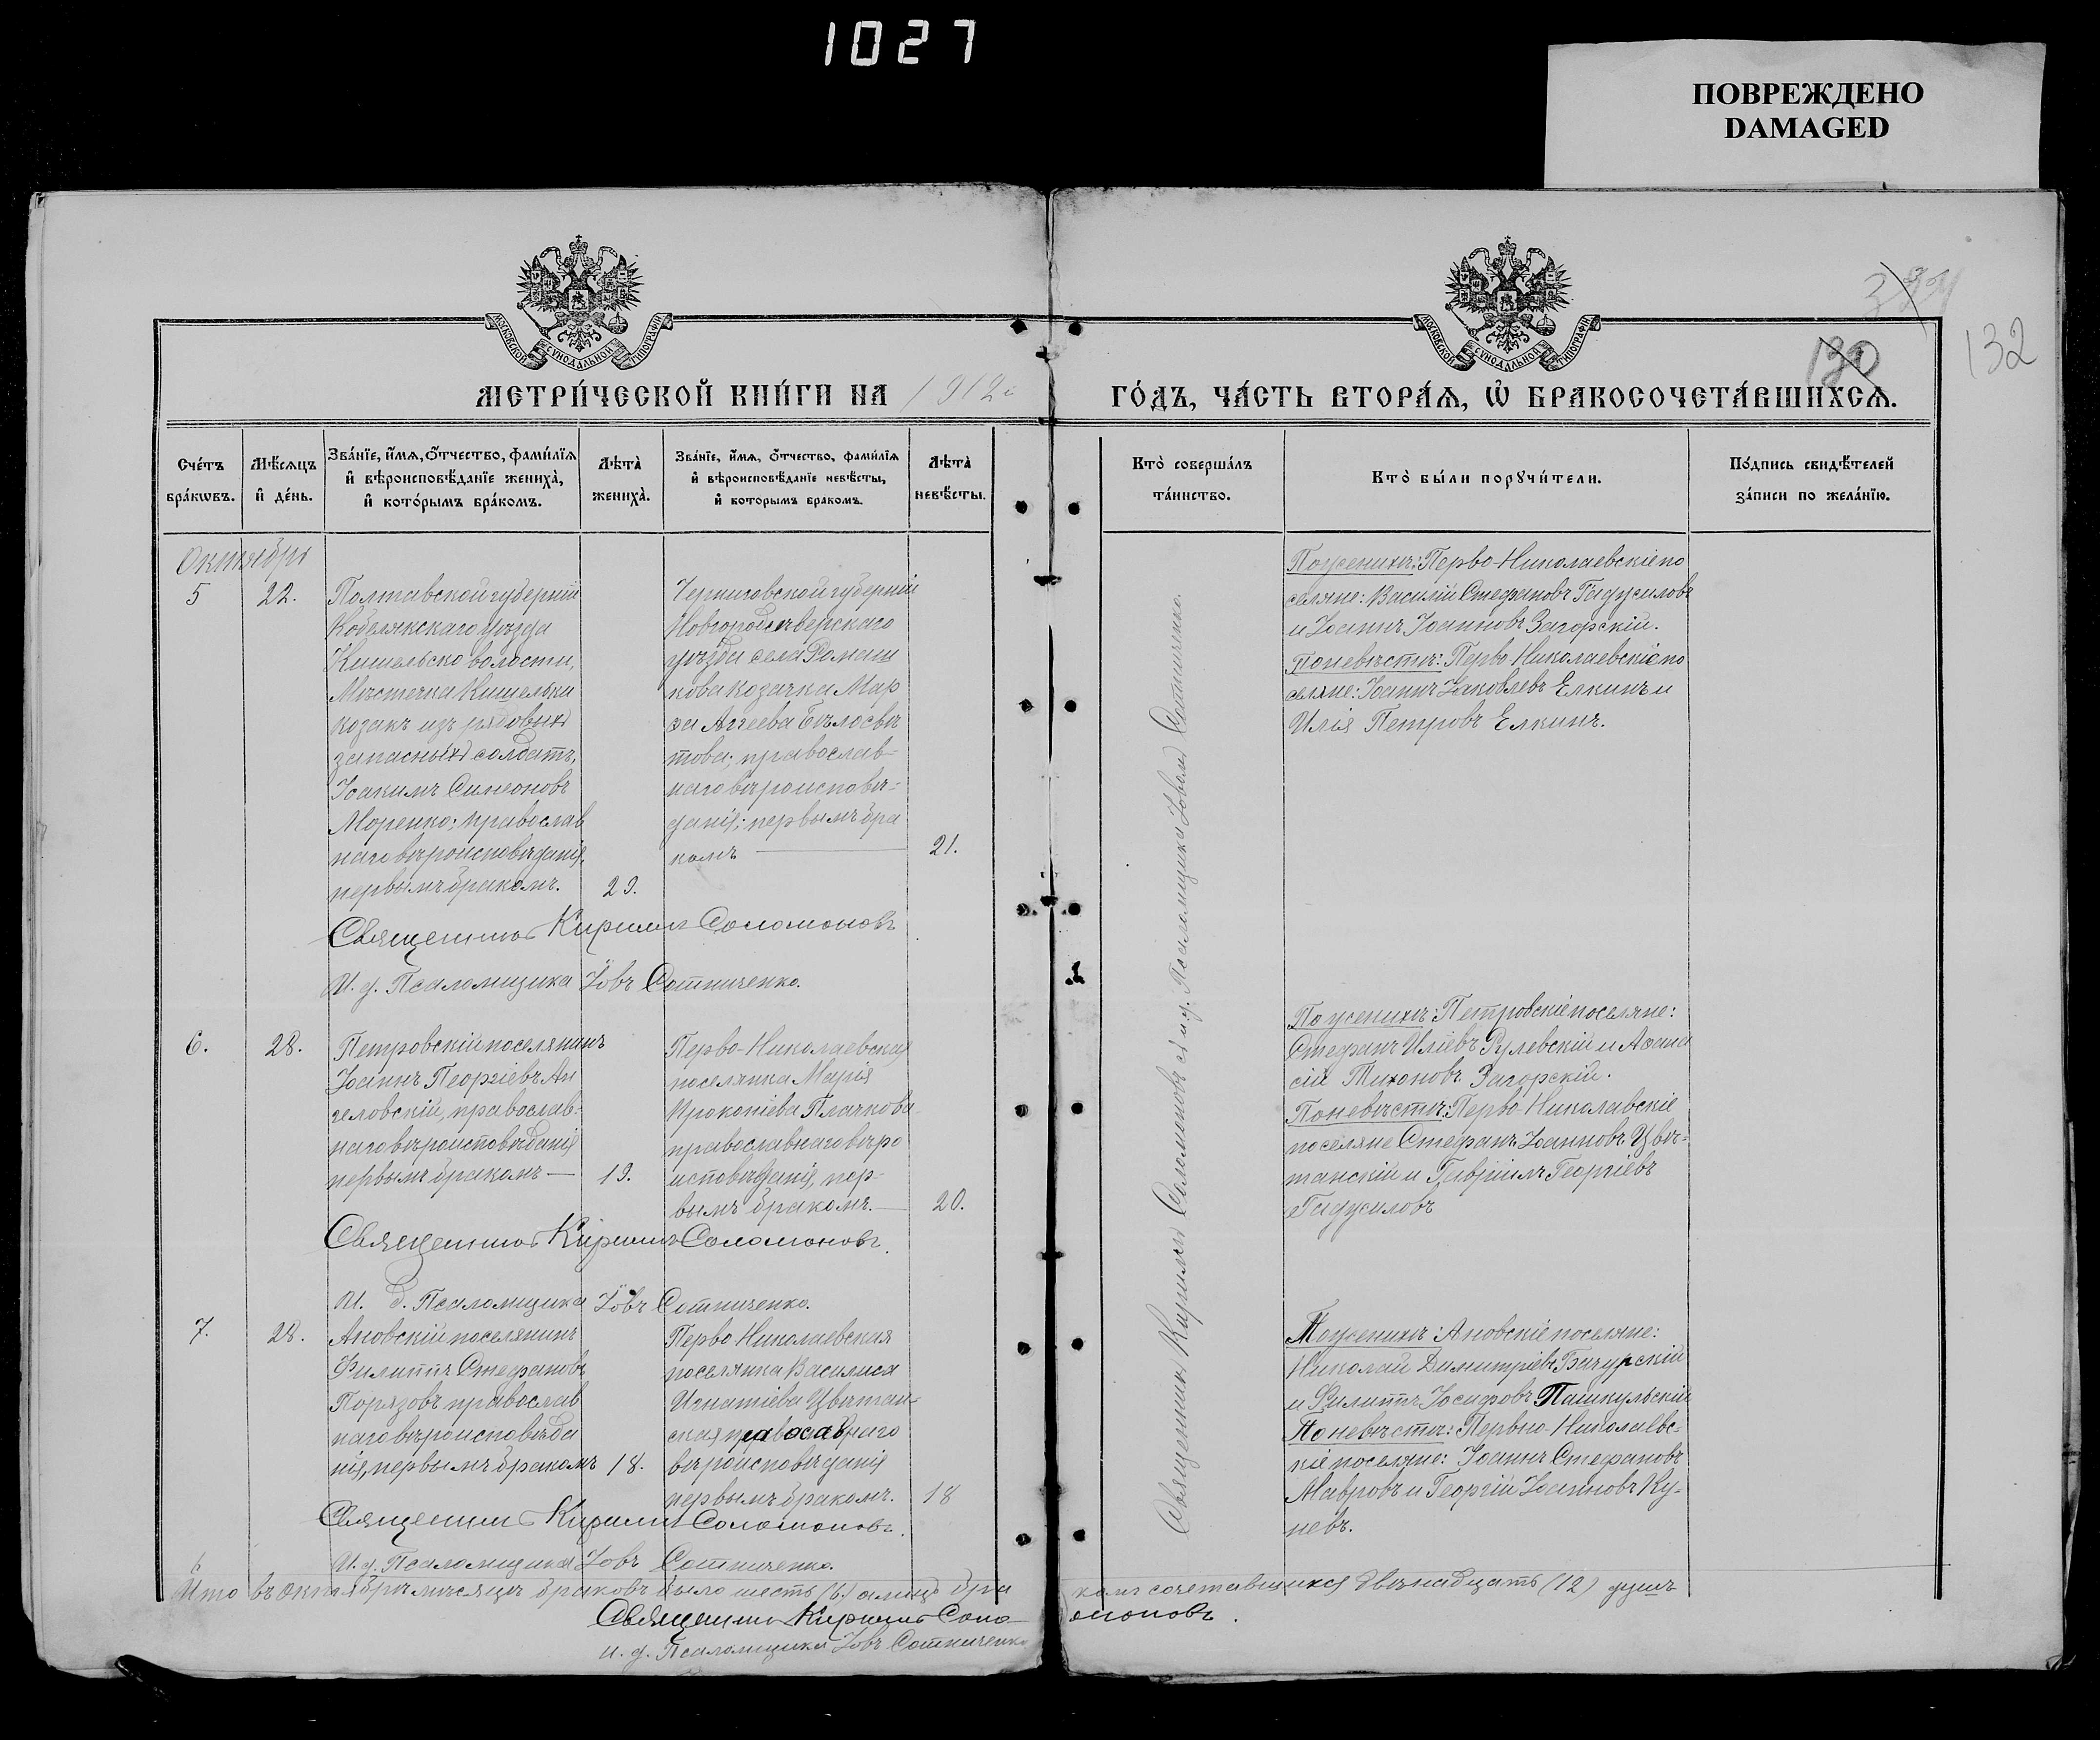 1027
ПОВРЕЖДЕНО
DAMAGED
МОСКОВСКОЙ СѴНОДАЛЬНОЙ ТИПОГРАФІИ
МОСКОВСКОЙ СѴНОДАЛЬНОЙ ТИПОГРАФІИ
130
132
МЕТРИ́ЧЕСКОЙ КНИ́ГИ НА 1912 го
ГО́ДЪ, ЧА́СТЬ ВТОРА́Ѧ, Ѽ БРАКОСОЧЕТА́ВШИХСѦ.
Сче́тъ бра́кѡвъ.
Мѣ́сяцъ и҆ де́нь.
Зва́нїе, и҆́мѧ, ѻ҆́тчество, фами́лїѧ и҆ вѣроисповѣ́данїе жениха̀, и҆ кото́рымъ бра́комъ.
Лѣта̀ жениха̀.
Зва́нїе, и҆́мѧ, ѻ҆́тчество, фами́лїѧ и҆ вѣроисповѣ́данїе невѣ́сты, и҆ которымъ бракомъ.
Лѣта̀ невѣ́сты.
Кто̀ соверша́лъ та́инство.
Кто̀ бы́ли порꙋчи́тели.
По́дпись свидѣ́телей за́писи по жела́нїю.
Октябрь
5
22.
Полтавской губерніи
Кобелякскаго уѣзда
Кишельско волости,
Мѣстечка Кишельки
козакъ изъ рядовыхъ
запасныхъ солдатъ,
Іоакимъ Симеоновъ
Моренко; православ
наго вѣроисповѣданія,
первымъ бракомъ.
29.
Черниговской губерніи
Новгородсѣверскаго
уѣзда села Ромаш
кова козачка Мар
ѳа Аггеева Бѣлосвѣ
това; православ-
наго вѣроисповѣ-
данія; первымъ бра
комъ
21.
По женихѣ: Перво-Николаевскіе по
селяне: Василій Стефановъ Гаджиловъ
и Іоаннъ Іоанновъ Загорскій.
По невѣстѣ: Перво-Николаевскіе по
селяне: Іоаннъ Іаковлевъ Елкинъ и
Илія Петровъ Елкинъ.
Священникъ Кириллъ Соломоновъ
И. д. Псаломщика Іовъ Сотниченко.
6.
28.
Петровскій поселянинъ
Іоаннъ Георгіевъ Ан
геловскій, православ-
наго вѣроисповѣданія
первымъ бракомъ
19.
Перво-Николаевская
поселянка Марія
Прокопіева Плачкова
православнаго вѣро
исповѣданія, пер-
вымъ бракомъ.
20.
По женихѣ: Петровскіе поселяне:
Стефанъ Иліевъ Рулевскій и Аѳана
сій Тихоновъ Загорскій.
По невѣстѣ: Перво-Николавскіе
поселяне Стефанъ Іоанновъ Цвѣ-
танскій и Гавріилъ Георгіевъ
Гаджиловъ
Священникъ Кириллъ Соломоновъ.
И. д. Псаломщика Іовъ Сотниченко.
7.
28.
Ановскій поселянинъ
Филиппъ Стефановъ
Порязовъ православ
наго вѣроисповѣда
нія, первымъ бракомъ
18.
Перво Николаевская
поселянка Василиса
Игнатіева Цвѣтан-
ская православнаго
вѣроисповѣданія
первымъ бракомъ.
18
По женихѣ: Ановскіе поселяне:
Николай Димитріевъ Бачурскій
и Филиппъ Іосифовъ Пашкульскій
По невѣстѣ: Первно-Николаевс-
кіе поселяне: Іоаннъ Стефановъ
Мавровъ и Георгій Іоанновъ Ку-
невъ.
Священникъ Кириллъ Соломоновъ.
И. д. Псаломщика Іовъ Сотниченко.
Священникъ Кириллъ Соломоновъ съ и. д. Псаломщика Іовомъ Сотниченко.
Что въ октябрѣ мѣсяцѣ браковъ было шесть (6) а лицъ бра
комъ сочетавшихся двѣнадцать (12) душъ
Священникъ Кириллъ Соло
моновъ.
и. д. Псаломщика Іовъ Сотниченко